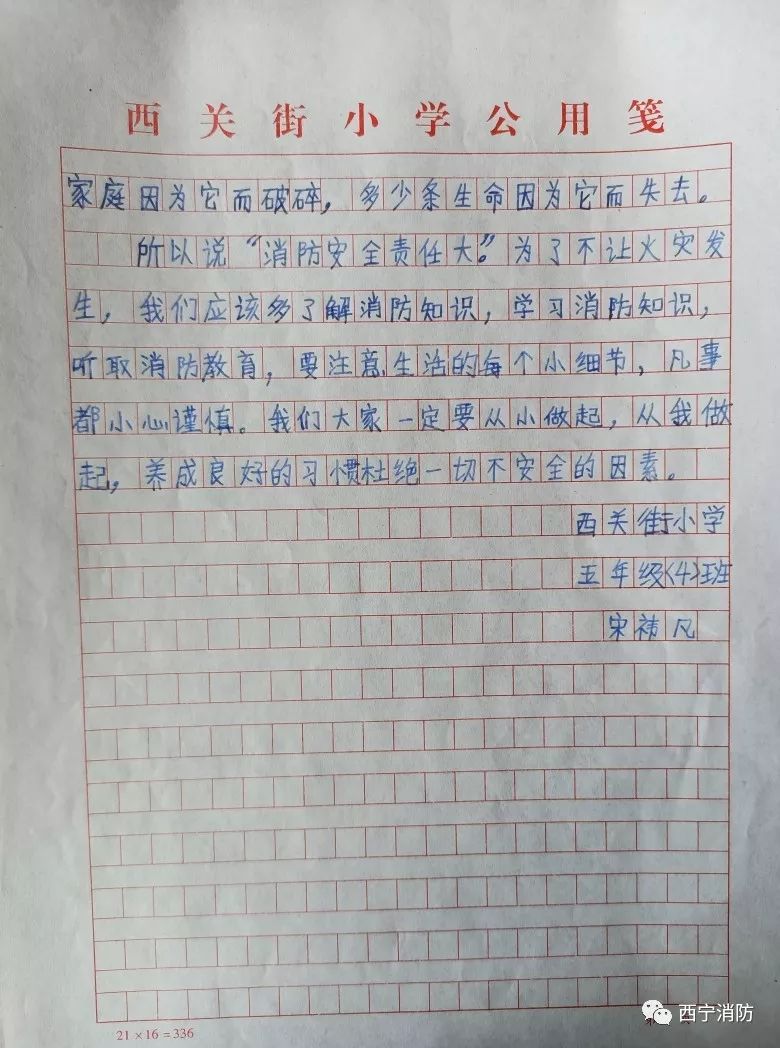 西关街小学公用笺
家庭因为它而破碎，多少条生命因为它而失去。
所以说“消防安全责任大”。为了不让火灾发
生，我们应该多了解消防知识，学习消防知识，
听取消防教育，要注意生活的每个小细节，凡事
都小心谨慎。我们大家一定要从小做起，从我做
起，养成良好的习惯杜绝一切不安全的因素。
西关街小学
五年级(4)班
宋祎凡
21×16=336
西宁消防